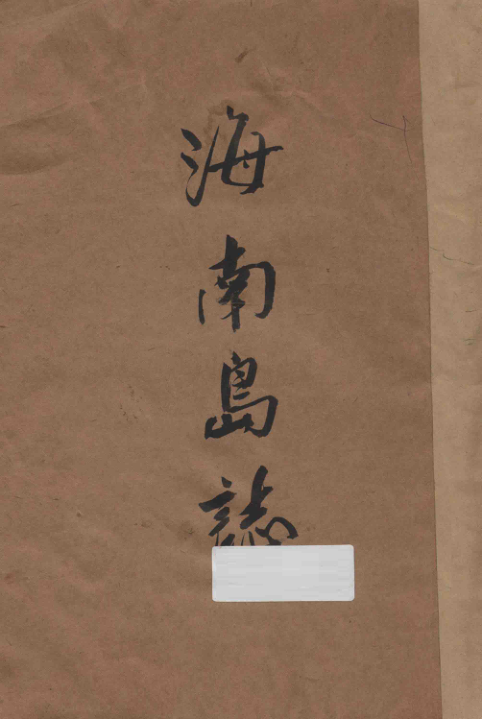 海南島誌